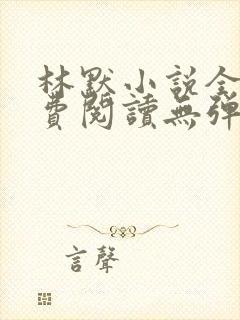 林默小说全
費閱讀無彈
言聲